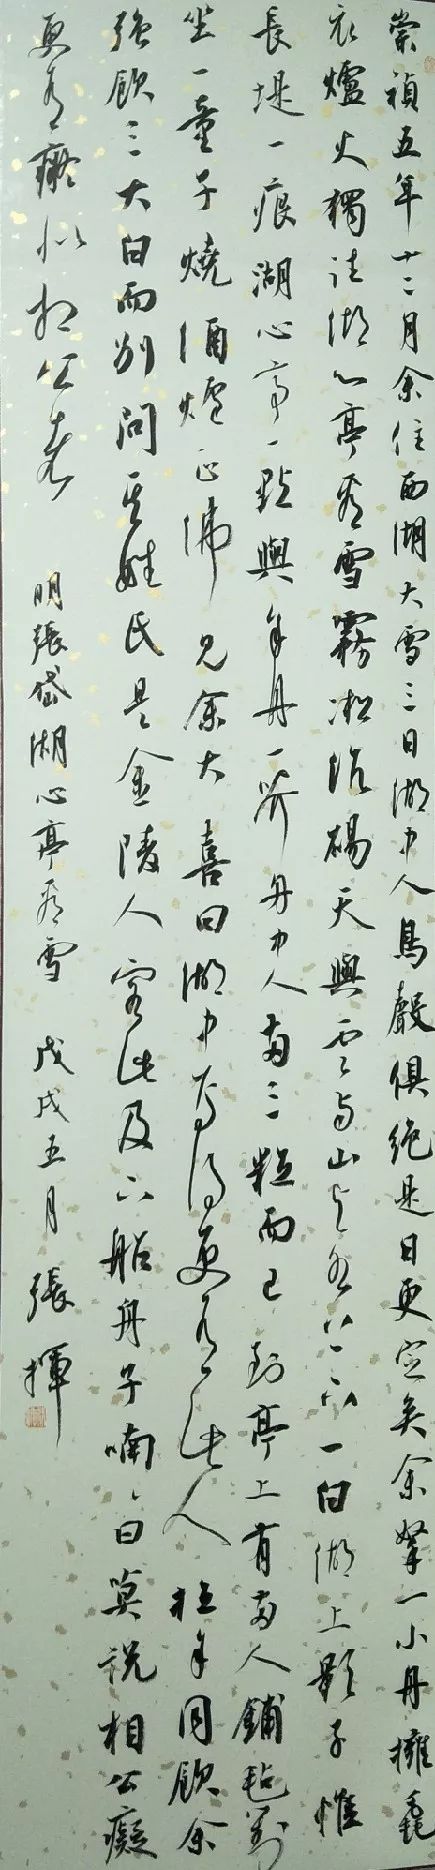 崇禎五年十二月余住西湖大雪三日湖中人鳥聲俱絕是日更定矣余拏一小舟擁毳
衣爐火獨往湖心亭看雪霧凇沆碭天與雲与山与水上下一白湖上影子惟
長堤一痕湖心亭一點與余舟一芥舟中人兩三粒而已到亭上有兩人鋪毡對
坐一童子燒酒爐正沸見余大喜曰湖中焉得更有此人拉余同飲余
強飲三大白而別問其姓氏是金陵人客此及下船舟子喃〻曰莫說相公癡
更有癡似相公者 明張岱湖心亭看雪 戊戌五月 張揮